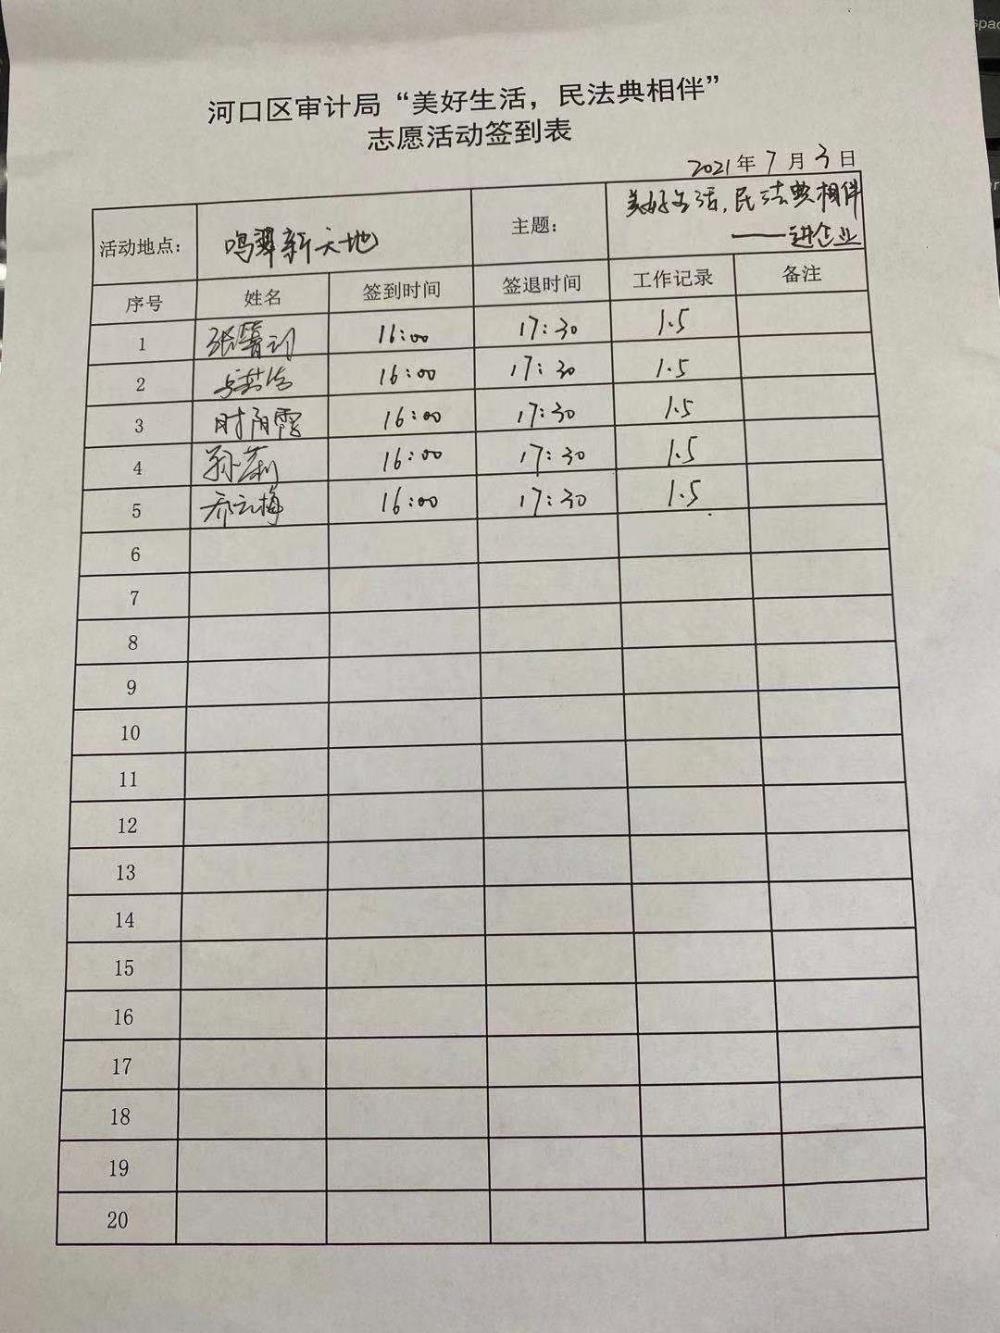 河口区审计局“美好生活，民法典相伴”
志愿活动签到表
2021年7月3日
活动地点： 鸣翠新天地 主题： 美好生活，民法典相伴
——进企业
序号 姓名 签到时间 签退时间 工作记录 备注
1 16:00 17:30 1.5
2 16:00 17:30 1.5
3 时阳霞 16:00 17:30 1.5
4 孙莉 16:00 17:30 1.5
5 乔云梅 16:00 17:30 1.5
6
7
8
9
10
11
12
13
14
15
16
17
18
19
20